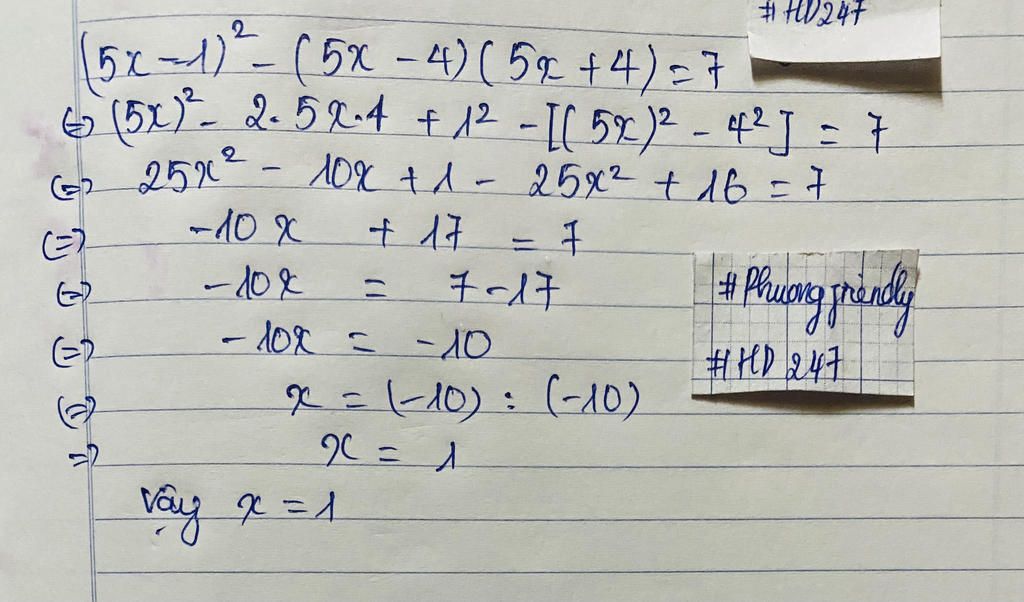 #HD247
(5x-1)² - (5x - 4)(5x + 4) = 7
(=) (5x)² - 2. 5x.1 + 1² - [(5x)² - 4²] = 7
(=) 25x² - 10x + 1 - 25x² + 16 = 7
(=) -10x + 17 = 7
(=) -10x = 7-17
(=) -10x = -10
(=) x = (-10) : (-10)
=) x = 1
Vậy x = 1
#Phuongfriendly
#HD 247